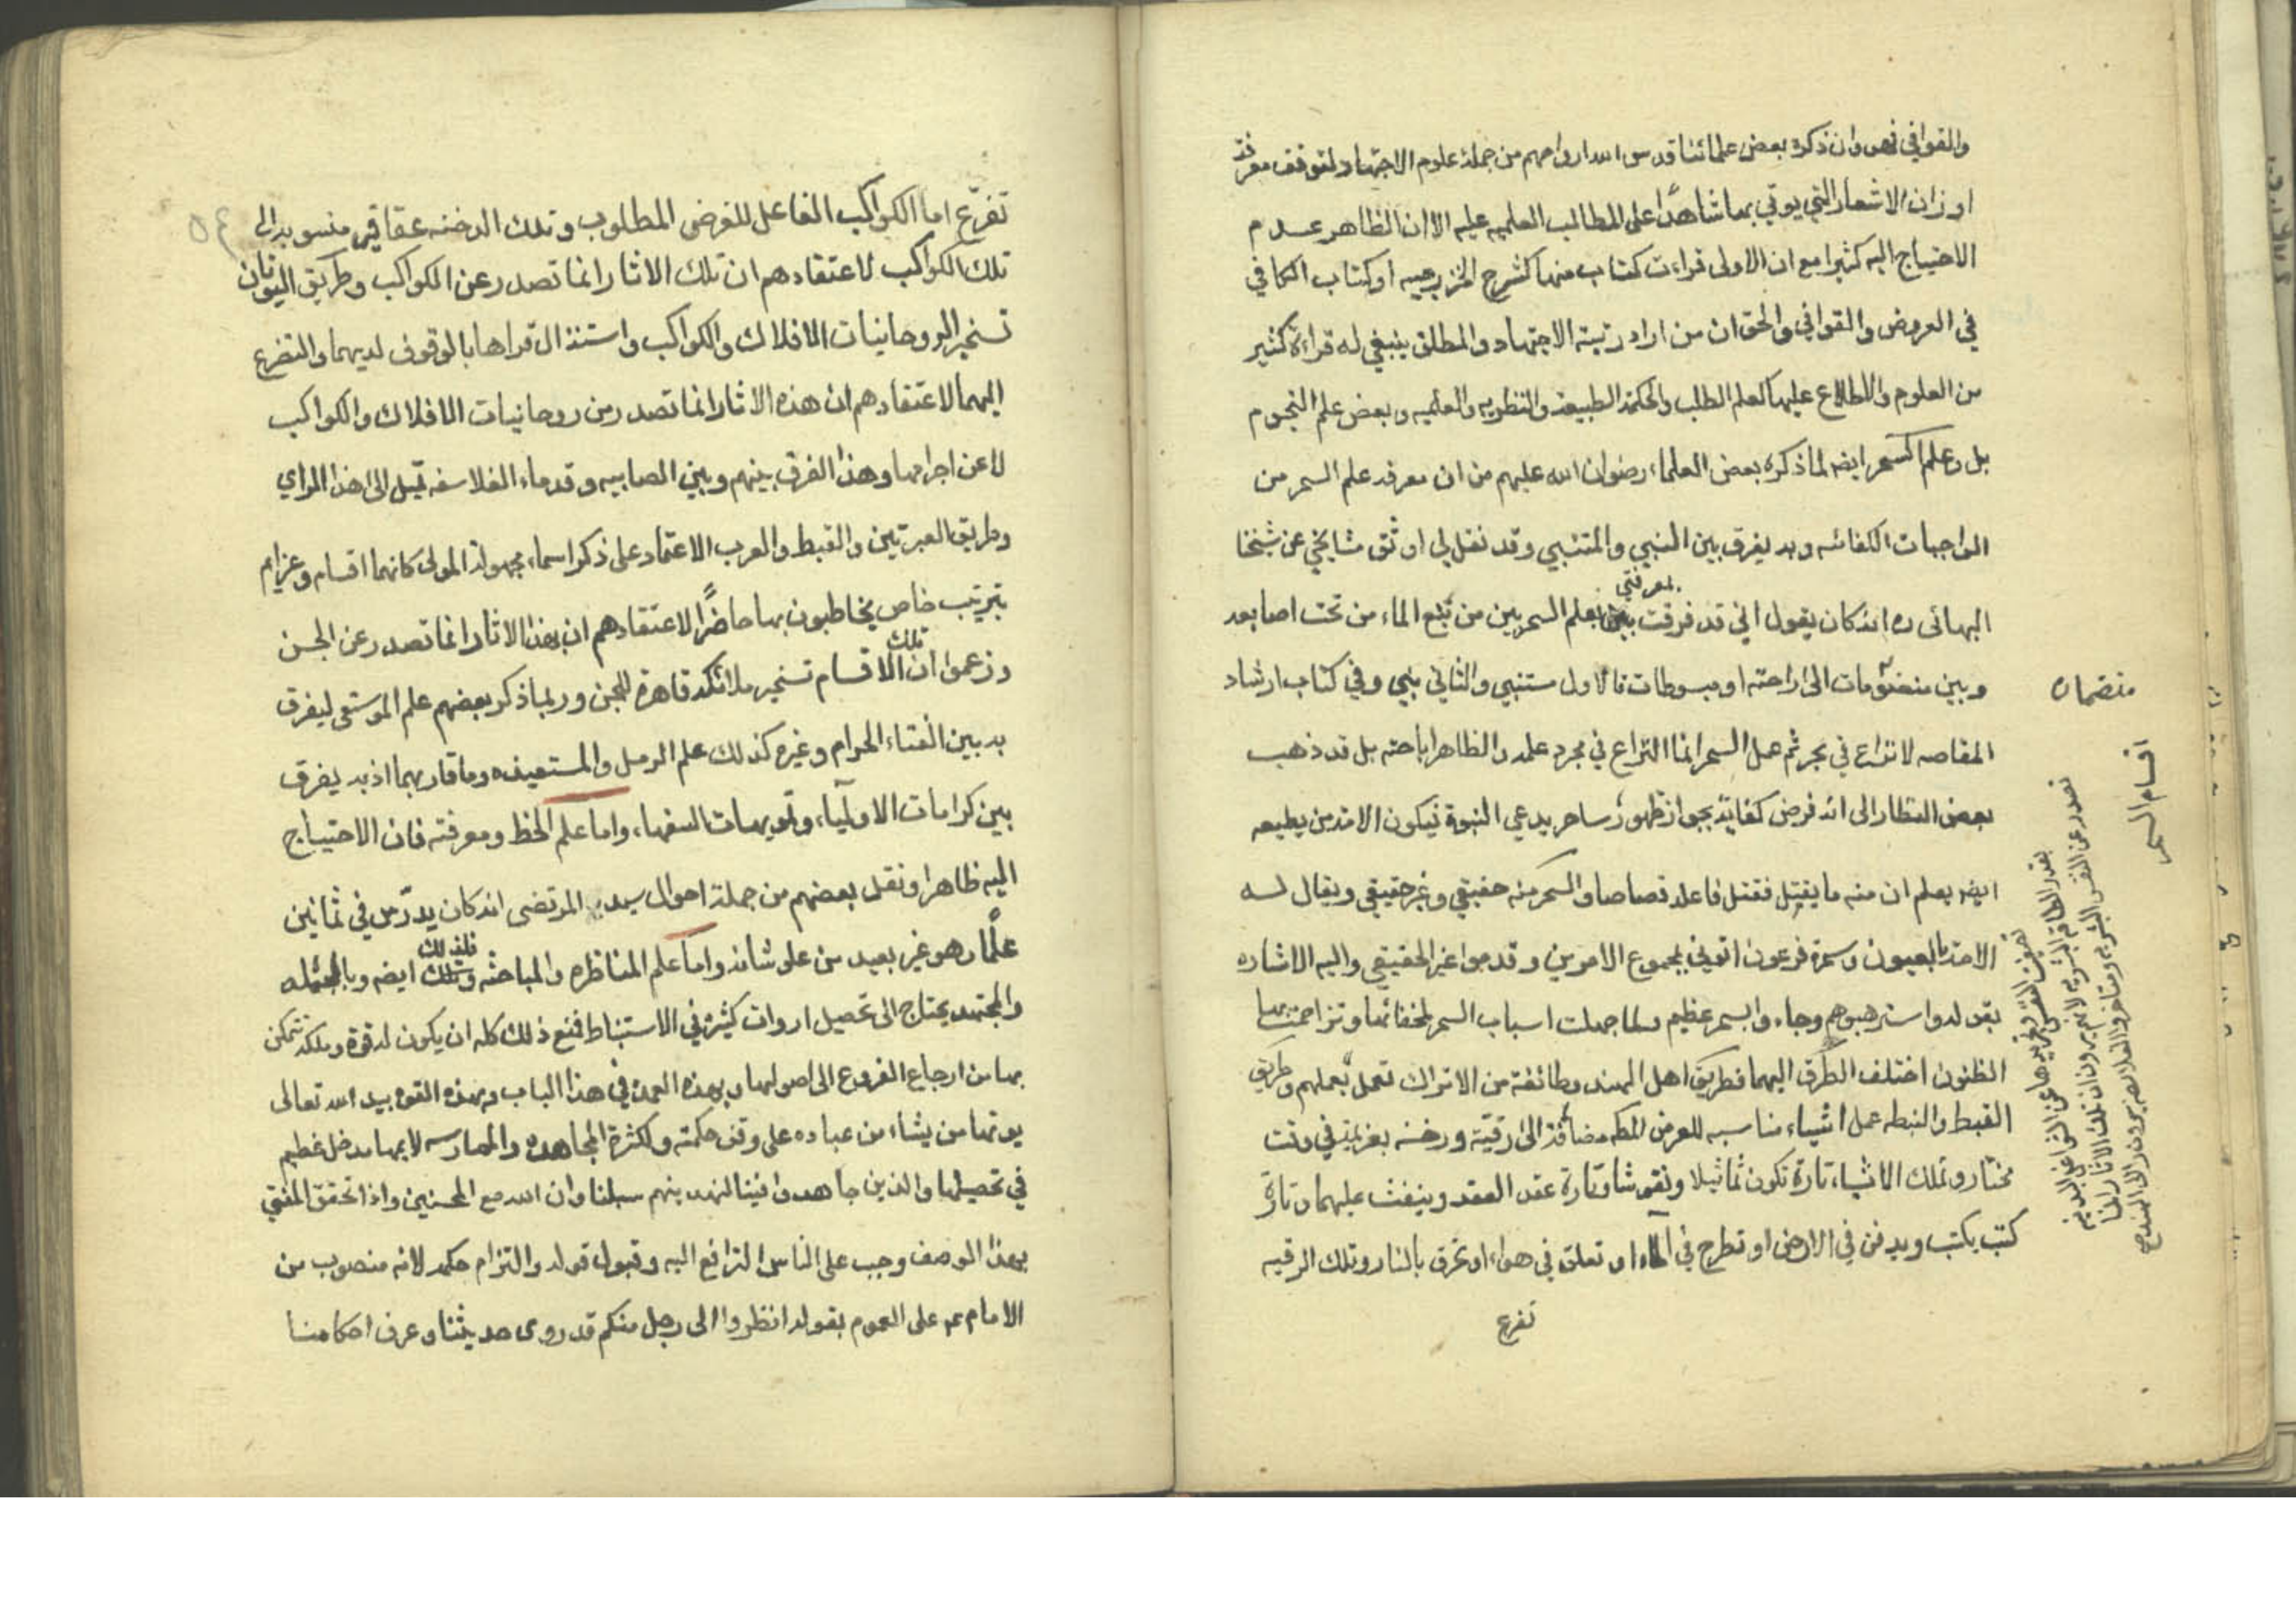 والقوافي فهو وان ذكره بعض علمائنا قدس الله ارواحهم من جملة علوم الاجتهاد لتوقف معرفة
اوزان الاشعار التي يوتي بها شاهدًا على المطالب العلميه عليه الا ان الظاهر عدم
الاحتياج اليه كثيرا مع ان الاولى قراءت كتاب منها كشرح الخزرجيه او كتاب الكافي
في العروض والقوافي والحق ان من اراد رتبة الاجتهاد والمطلق ينبغي له قراءة كثير
من العلوم والاطلاع عليها كعلم الطب والحكمة الطبيعة والنظريه والعلميه وبعض علم النجوم
بل وعلم السحر ايضه لما ذكره بعض العلماء رضوان الله عليهم من ان معرفه علم السحر من
الواجبات الكفائيه وبه يفرق بين النبي والمتنبي وقد نقل لي اوثق مشايخي عن شيخنا
البهائى ره انه كان يقول اني قد فرقت بمعرفتي بعلم السحر بين من نبع الماء من تحت اصابعه
وبين منضمّات الى راحته او مبسوطات فالاول متنبي والثاني نبي وفي كتاب ارشاد
المقاصه لا نزاع في تحريم عمل السحر انما النزاع في مجرد علمه والظاهر اباحته بل قد ذهب
بعض النظار الى انه فرض كفاية بجواز ظهور ساحر يدعي النبوة فيكون الامة من يطيعه
ايضه يعلم ان منه ما يقتل فقتل فاعله قصاصا والسحر منه حقيقي وغير حقيقي ويقال له
الاخذ بالعيون وسحرة فرعون اتو في مجموع الامرين وقدموا غير الحقيقي واليه الاشاره
بقوله واسترهبوهم وجاءوا بسحر عظيم ولما جهلت اسباب السحر لخفائها وتزاحمت بها
الظنون اختلف الطرق اليها فطريق اهل الهند وطائفة من الاتراك تعمل بعملهم وطريق
القبط والنبطه عمل اشياء مناسبه للغرض المط مضافة الى رقية ودخنه بعزيمة في وقت
مختار وتلك الاشياء تارة تكون تماثيلا ونقوشا وتارة عقد العقد وينفث عليها وتارة
كتب يكتب ويدفن في الارض او تطرح في الماء او تعلق في هواء او تحرق بالنار وتلك الرقيه
تفرع
منضمات
اقسام السحر
تفرّع اما الكواكب الفاعل للغرض المطلوب وتلك الدخنه عقاقير منسوبه الى
تلك الكواكب لاعتقادهم ان تلك الاثار انما تصدر عن الكواكب وطريق اليونان
تسخير الروحانيات الافلاك والكواكب واستنزال قواها بالوقوف لديهما والتضرع
اليهما لاعتقادهم ان هذه الاثار انما تصدر من روحانيات الافلاك والكواكب
لا عن اجرامها وهذا الفرق بينهم وبين الصابيه وقدماء الفلاسفه تميل الى هذا الراي
وطريق العبريين والقبط والعرب الاعتماد على ذكر اسماء مجهولة المولى كانهما اقسام وعزايم
بترتيب خاص يخاطبون بها حاضرًا لاعتقادهم ان هذا الاثار انما تصدر عن الجن
وزعموا ان تلك الاقسام تسخير ملائكه قاهرة للجن وربما ذكر بعضهم علم الموسقى ليفرق
به بين الغناء الحرام وغيره كذلك علم الرمل والمستعيفه وما قاربهما اذ به يفرق
بين كرامات الاولياء، وتمويهات السفهاء، واما علم الخط ومعرفته فان الاحتياج
اليه ظاهرا ونقل بعضهم من جملة احوال سيد المرتضى انه كان يدرّس في ثمانين
علمًا وهو غير بعيد من علو شانه واما علم المناظره والمباحثه فلذلك ايضه وبالجمله
والمجتهد يحتاج الى تحصيل ادوات كثيرة في الاستنباط فنع ذلك كله ان يكون له قوة وملكه تتمكن
بها من ارجاع الفروع الى اصولها وبهذه العمدة في هذا الباب وهذه القوه بيد الله تعالى
يوتها من يشاء من عباده على وفق حكمته ولكثرة المجاهده والممارسه لا بها مدخل عظيم
في تحصيلها والذين جاهدوا فينا لنهدينهم سبلنا وان الله مع المحسنين واذا تحقق المفتي
بهذا الوصف وجب على الناس الترافع اليه وقبول قوله والتزام حكمه لانه منصوب من
الامام عم على العموم بقوله انظروا الى رجل منكم قد روى حديثنا وعرف احكامنا